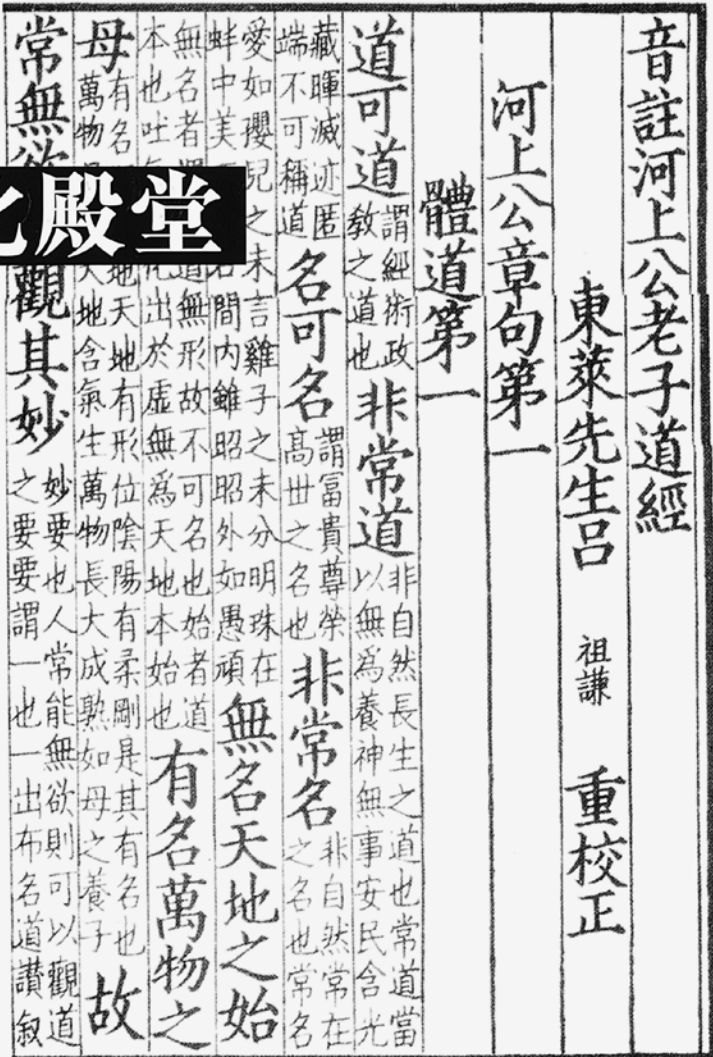 音註河上公老子道經
東萊先生呂 祖謙 重校正
河上公章句第一
體道第一
道可道 謂經術政教之道也 非常道 非自然長生之道也常道當以無爲養神無事安民含光
藏暉滅迹匿端不可稱道 名可名 謂富貴尊榮高世之名也 非常名 非自然常在之名也常名
愛如孾兒之未言雞子之未分明珠在蚌中美間內雖昭昭外如愚頑 無名天地之始
無名者道無形故不可名也始者道本也吐出於虛無爲天地本始也 有名萬物之
母 有名地天地有形位陰陽有柔剛是其有名也萬物天地含氣生萬物長大成熟如母之養子 故
常無欲觀其妙 妙要也人常能無欲則可以觀道之要要謂一也一出布名道讚叙
殿堂